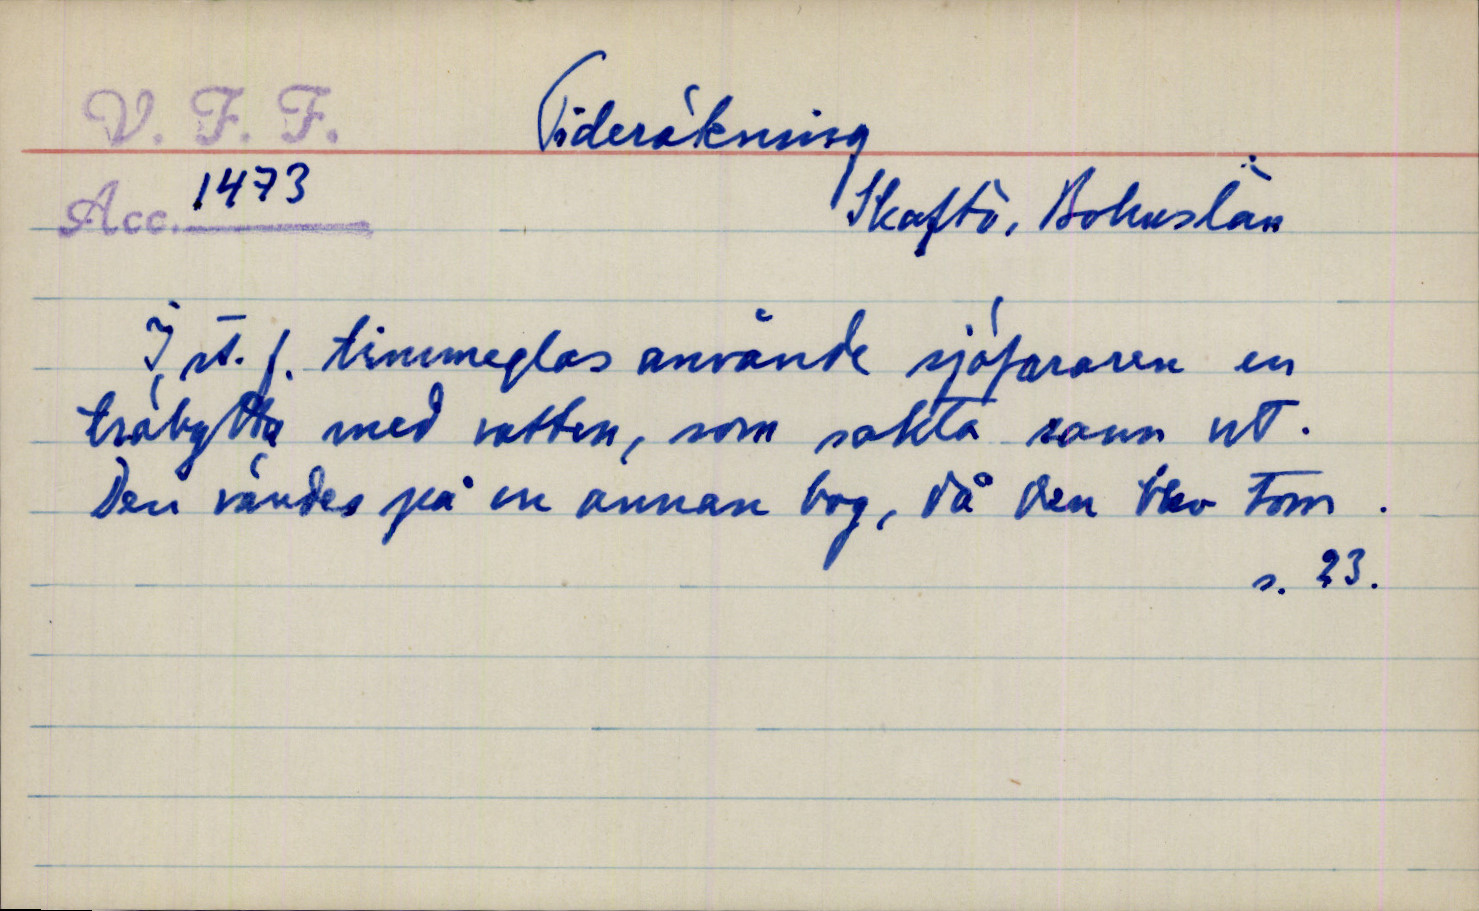 V. F. F.
Tideräkning
Acc. 1473
Skaftö, Bohuslän
I st. f. timmeglas använde sjöfararen en
träbytta med vatten, som sakta rann ut.
Den vändes på en annan bog, då den blev tom.
s. 23.